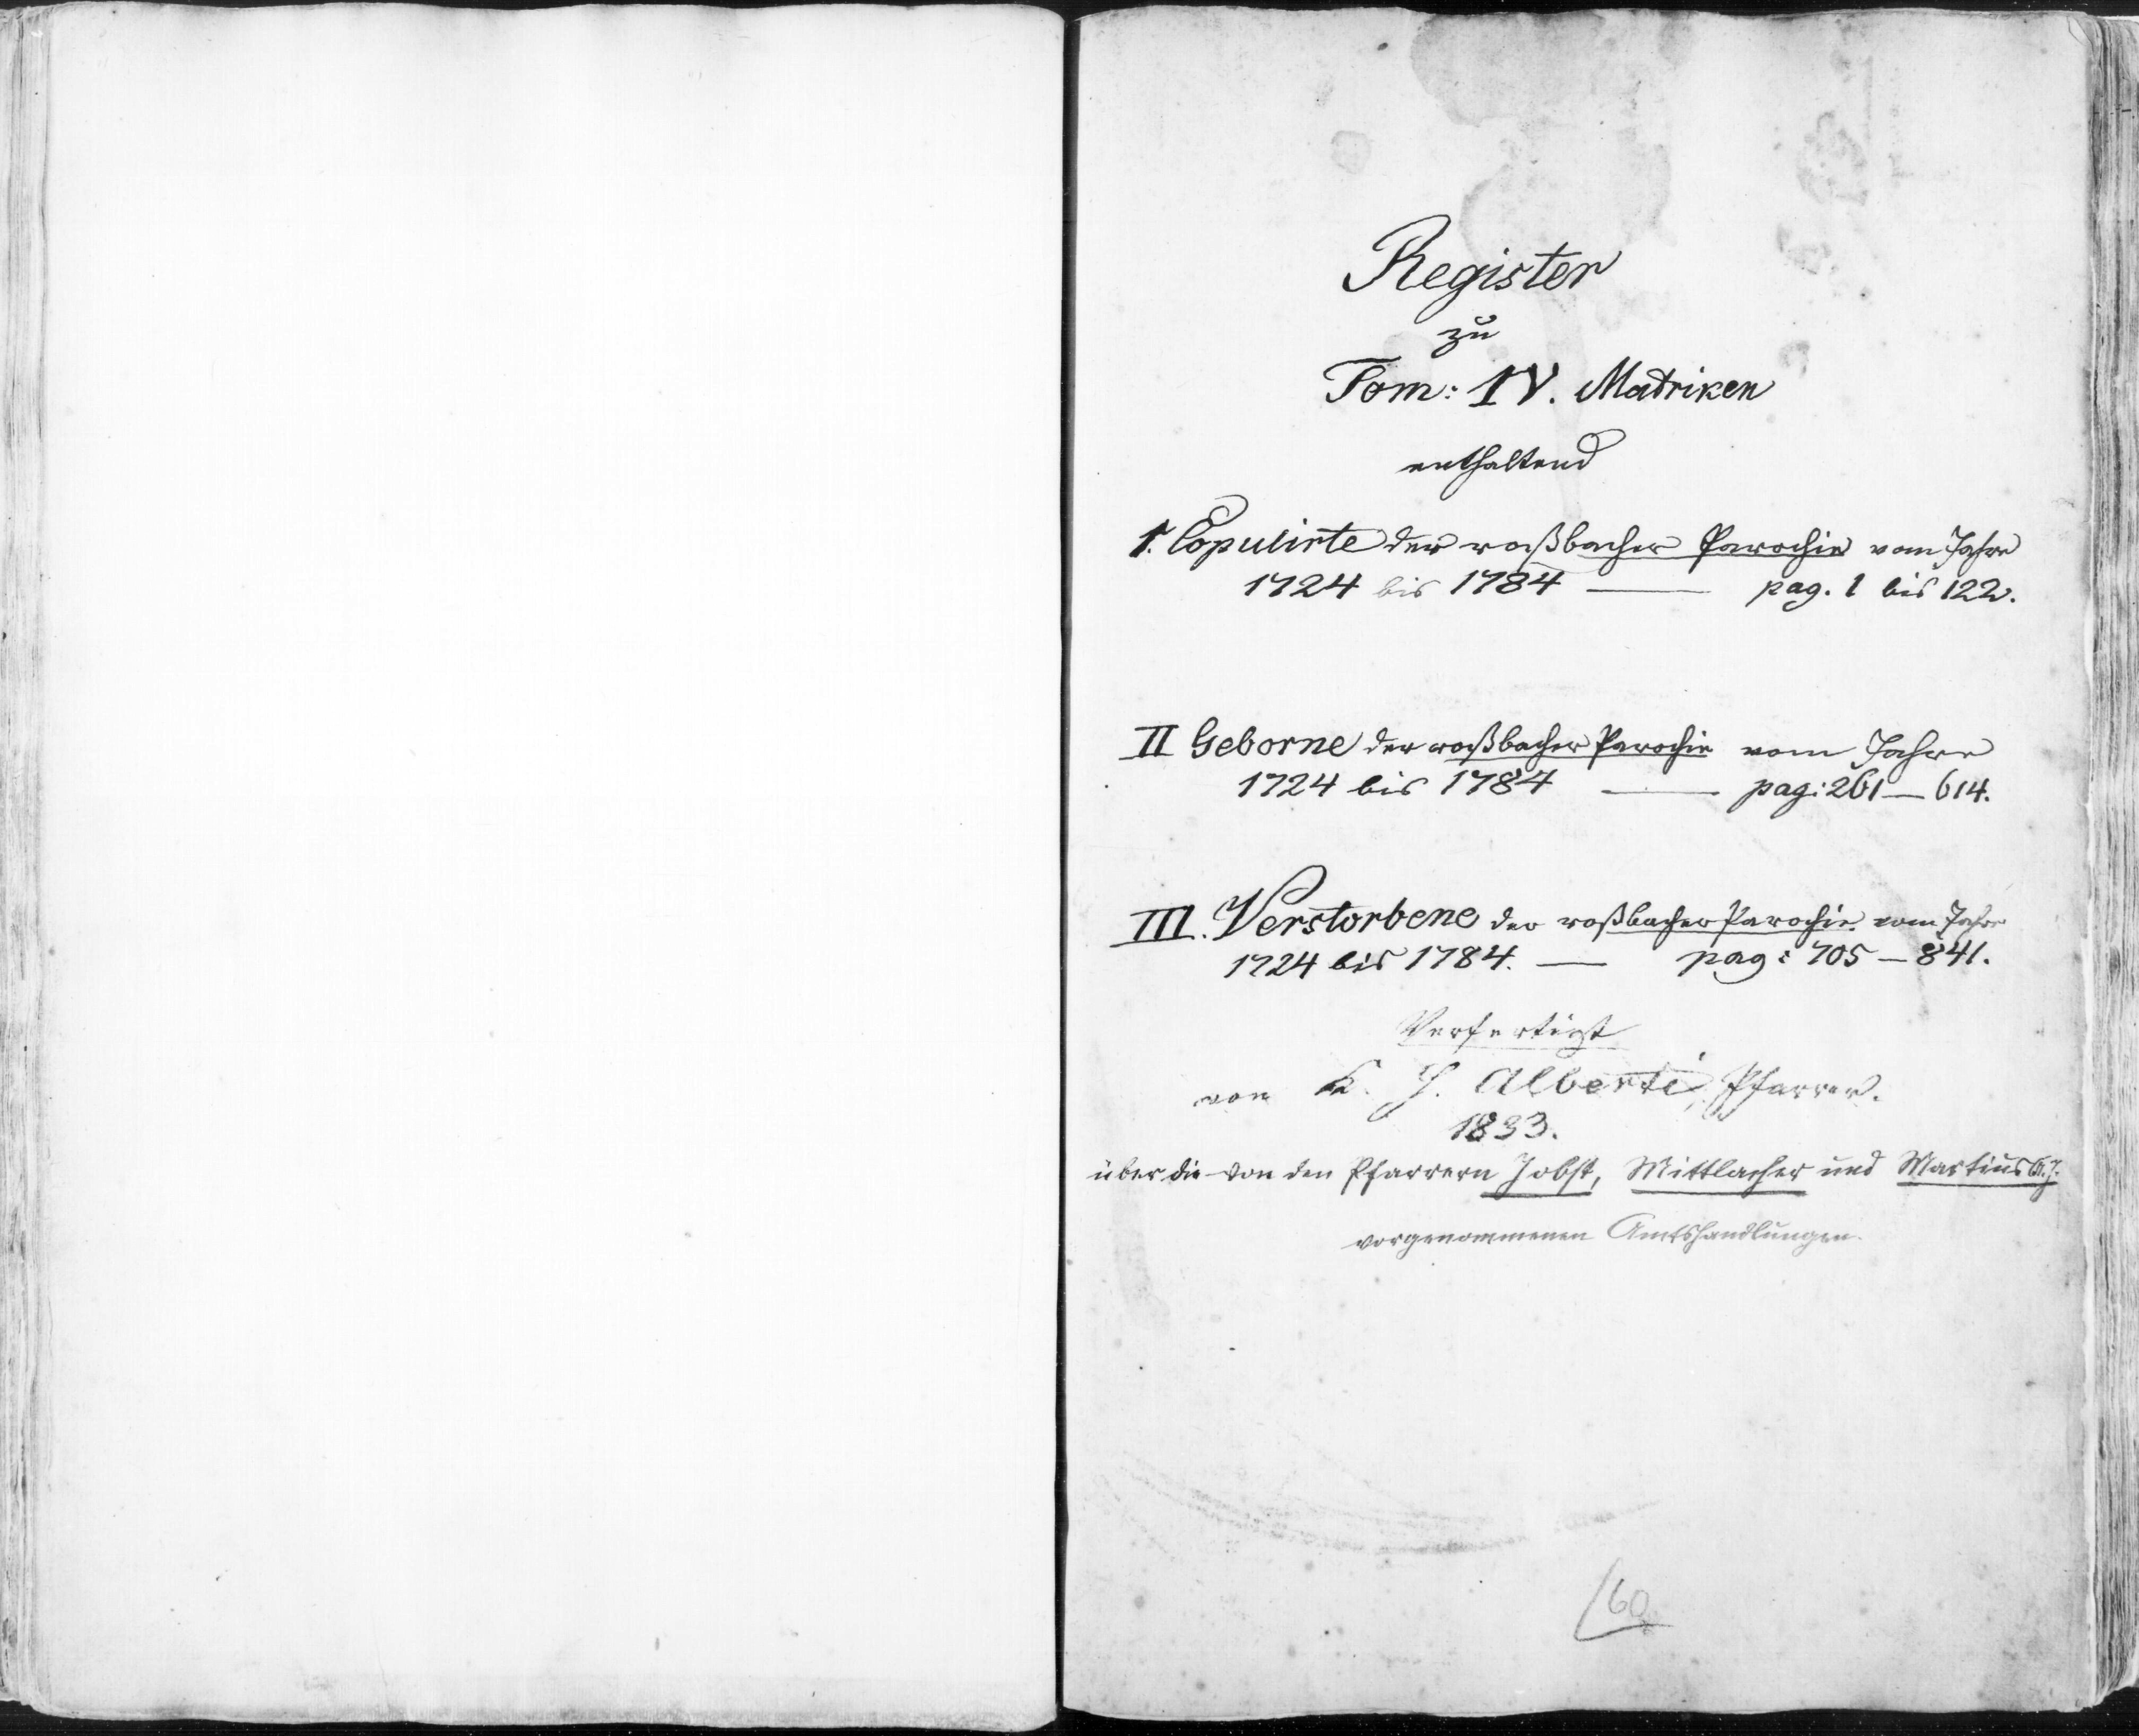 Register
zu
Tom: IV. Matriken
enthaltend
I. Copulirte der roßbacher Parochie vom Jahre
1724 bis 1784 — pag. 1 bis 122.
II Geborne der roßbacher Parochie vom Jahre
1724 bis 1784 — pag: 261 — 614.
III. Verstorbene der roßbacher Parochie vom Jahre
1724 bis 1784. — pag: 705 — 841.
Verfertigt
von K. J. Alberti, Pfarrer.
1833.
über die von den Pfarrern Jobst, Mittlacher und Martius
vorgenommenen Amtshandlungen.
60